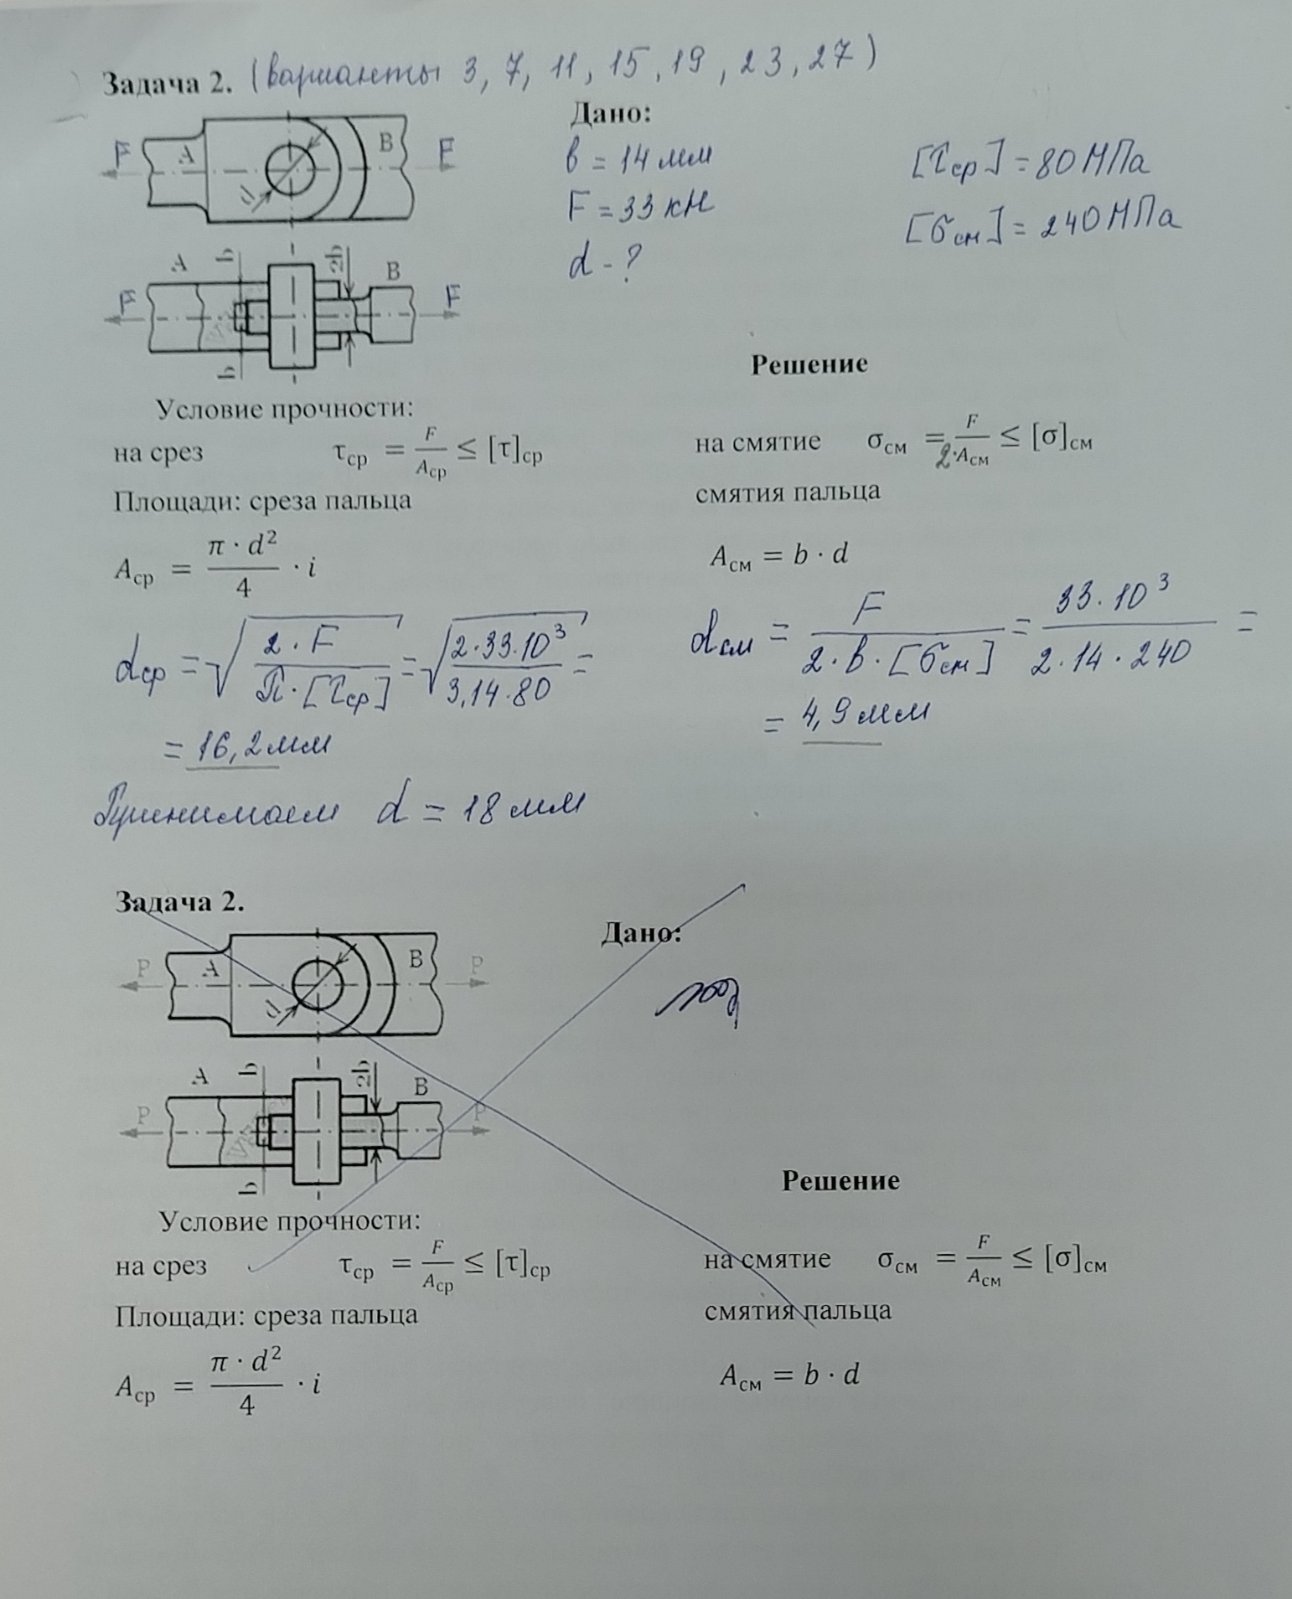 Задача 2. (варианты 3, 7, 11, 15, 19, 23, 27)
Дано:
F A d B F
b = 14 мм
[τср] = 80 МПа
F = 33 кН
[σсм] = 240 МПа
d - ?
A b 2b B
F F
b
Решение
Условие прочности:
на срез τср = F/Aср ≤ [τ]ср
на смятие σсм = F/2·Aсм ≤ [σ]см
Площади: среза пальца
смятия пальца
Aср = π · d²/4 · i
Aсм = b · d
dср = √(2·F/π·[τср]) = √(2·33·10³/3,14·80) =
dсм = F/2·b·[σсм] = 33·10³/2·14·240 =
= 16,2 мм
= 4,9 мм
Принимаем d = 18 мм
Задача 2.
Дано:
P A d B P
A b 2b B
P P
b
Решение
Условие прочности:
на срез τср = F/Aср ≤ [τ]ср
на смятие σсм = F/Aсм ≤ [σ]см
Площади: среза пальца
смятия пальца
Aср = π · d²/4 · i
Aсм = b · d